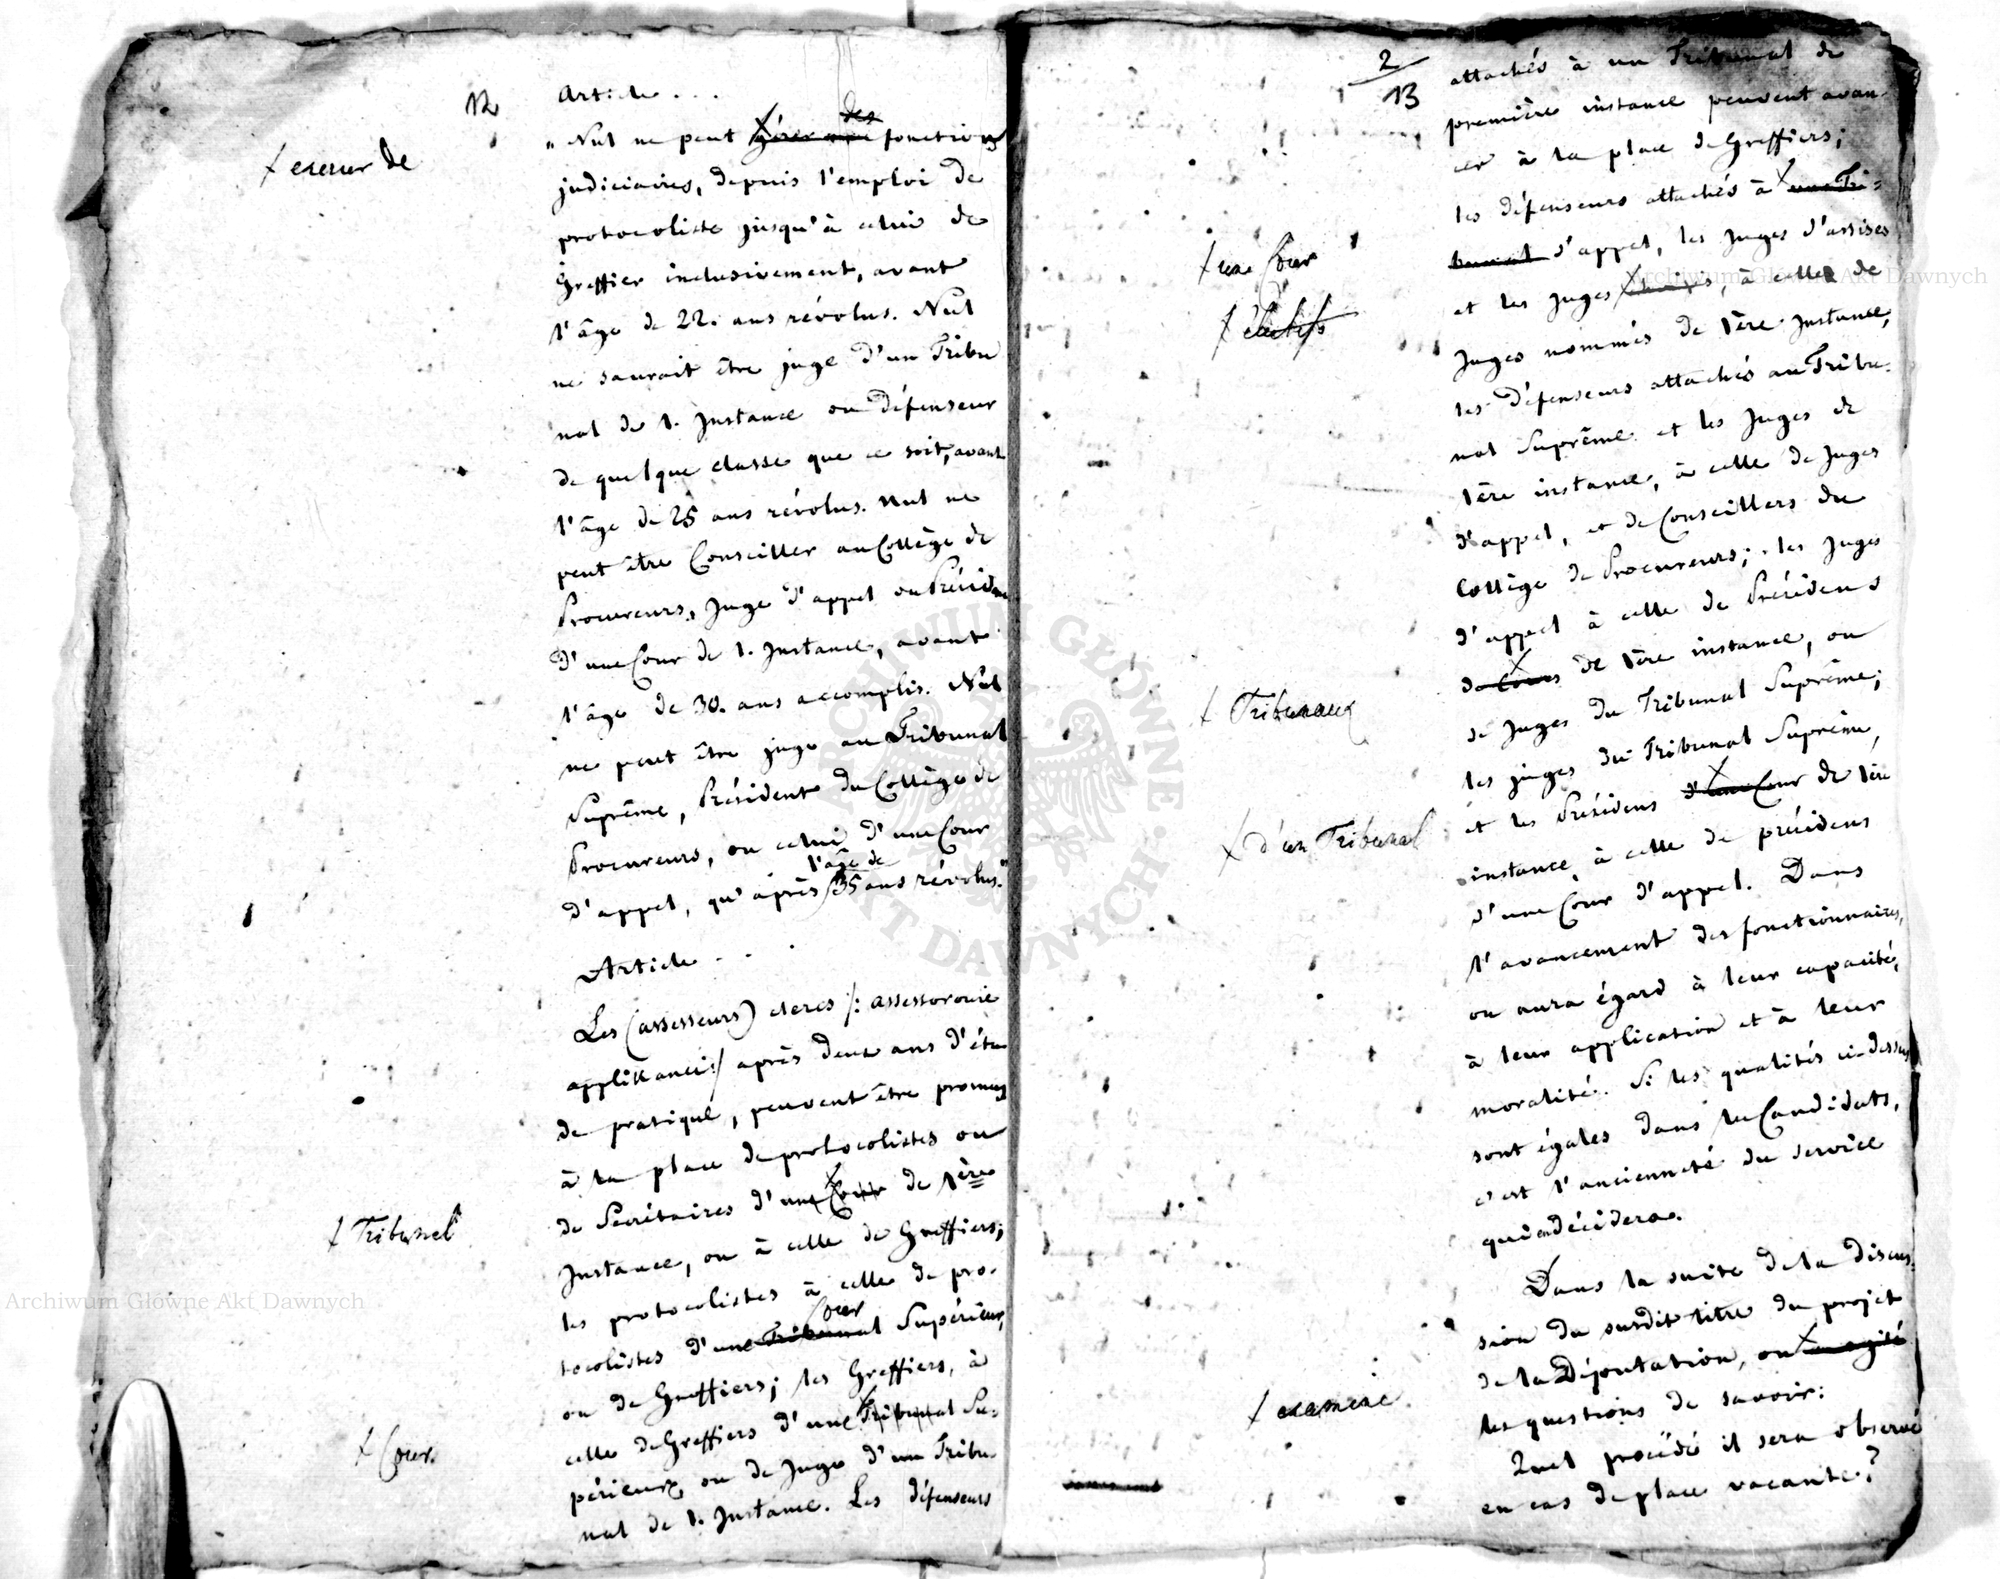 12
Article . . .
des
" Nul ne peut gérer une fonctions
+ exercer de
judiciaires, depuis l'emploi de
protocoliste jusqu'à celui de
Greffier inclusivement, avant
l'âge de 22. ans révolus. Nul
ne saurait être juge d'un Tribu
nal de 1. Instance ou défenseur
de quelque classe que ce soit, avant
l'âge de 25 ans révolus. Nul ne
peut être Conseiller au Collège de
Procureurs, Juge d'appel ou Présidens
d'une Cour de 1. Instance, avant
l'âge de 30. ans accomplis. Nul
ne peut être juge au Tribunal
Suprême, Président du Collège de
Procureurs, ou celui d'une Cour
l'âge de
d'appel, qu'après 35 ans révolus."
Article . .
Les (assesseurs) clercs /: assessorowie
applikanci :/ après deux ans d'étu
de pratique, peuvent être promus
à la place de protocolistes ou
de Secrétaires d'une Cour de 1ère
+ Tribunal
Instance, ou à celle de Greffiers;
les protocolistes à celle de pro-
Cour
tocolistes d'une Tribunal Supérieur,
ou de Greffiers; les Greffiers, à
celle de Greffiers d'une Tribunal Su-
+ Cour.
périeur, ou de Juge d'un Tribu-
nal de 1. Instance. Les défenseurs
2
13
attachés à un Tribunal de
première instance peuvent avan-
cer à la place de Greffiers;
les défenseurs attachés à une Tri-
bunal d'appel, les Juges d'assises
+ une Cour
et les Juges , à celle de
+ électifs
Juges nommés de 1ère Instance,
les défenseurs attachés au Tribu-
nal Suprême et les Juges de
1ère instance, à celle de Juges
d'appel, et de Conseillers du
Collège de Procureurs; les Juges
d'appel à celle de Présidens
de Cours de 1ère instance, ou
+ Tribunaux
de Juges du Tribunal Suprême;
les juges du Tribunal Suprême,
et les Présidens d'une Cour de 1ère
+ d'un Tribunal
instance, à celle de présidens
d'une Cour d'appel. Dans
l'avancement des fonctionnaires,
on aura égard à leur capacité,
à leur application et à leur
moralité. Si les qualités ci-dessus
sont égales dans les Candidats,
c'est l'ancienneté du service
qui en décidera.
Dans la suite de la discus-
sion du susdit titre du projet
de la Députation, on a agité
+ examiné
les questions de savoir:
Quel procédé il sera observé
en cas de place vacante?
Archiwum Główne Akt Dawnych
Archiwum Główne Akt Dawnych
ARCHIWUM GŁÓWNE AKT DAWNYCH